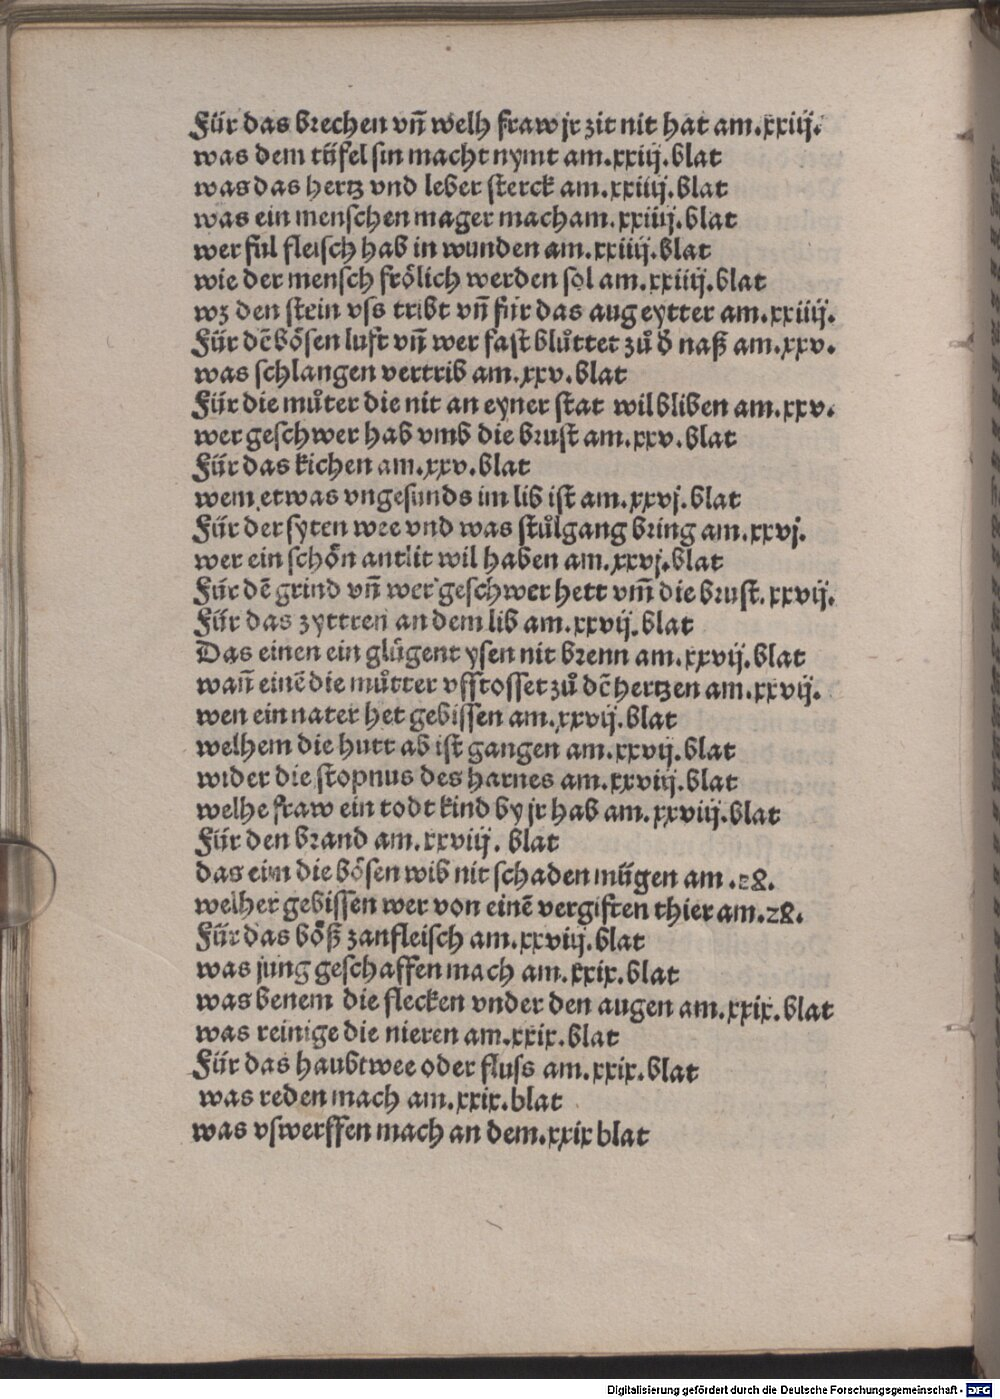 Für das brechen vñ welh fraw jr zit nit hat am.xxiij.
was dem tüfel sin macht nymt am.xxiij.blat
was das hertz vnd leber sterck am.xxiiij.blat
was ein menschen mager mach am.xxiiij.blat
wer ful fleisch hab in wunden am.xxiiij.blat
wie der mensch frölich werden sol am.xxiiij.blat
wz den stein vss tribt vñ für das aug eytter am.xxiiij.
Für dē bösen luft vñ wer fast blůttet zů d̕ naß am.xxv.
was schlangen vertrib am.xxv.blat
Für die můter die nit an eyner stat wil bliben am.xxv.
wer geschwer hab vmb die brust am.xxv.blat
Für das kichen am.xxv.blat
wem etwas vngesunds im lib ist am.xxvj.blat
Für der syten wee vnd was stůlgang bring am.xxvj.
wer ein schön antlit wil haben am.xxvj.blat
Für dē grind vñ wer geschwer hett vm̄ die brust.xxvij.
Für das zyttren an dem lib am.xxvij.blat
Das einen ein glügent ysen nit brenn am.xxvij.blat
wañ einē die můtter vfftosset zů dē hertzen am.xxvij.
wen ein nater het gebissen am.xxvij.blat
welhem die hutt ab ist gangen am.xxvij.blat
wider die stopnus des harnes am.xxviij.blat
welhe fraw ein todt kind by jr hab am.xxviij.blat
Für den brand am.xxviij. blat
das eim die bösen wib nit schaden mügen am .28.
welher gebissen wer von einē vergiften thier am.28.
Für das böß zanfleisch am.xxviij.blat
was jung geschaffen mach am.xxix.blat
was benem die flecken vnder den augen am.xxix.blat
was reinige die nieren am.xxix.blat
Für das haubtwee oder fluss am.xxix.blat
was reden mach am.xxix.blat
was vswerffen mach an dem.xxix blat
Digitalisierung gefördert durch die Deutsche Forschungsgemeinschaft - DFG